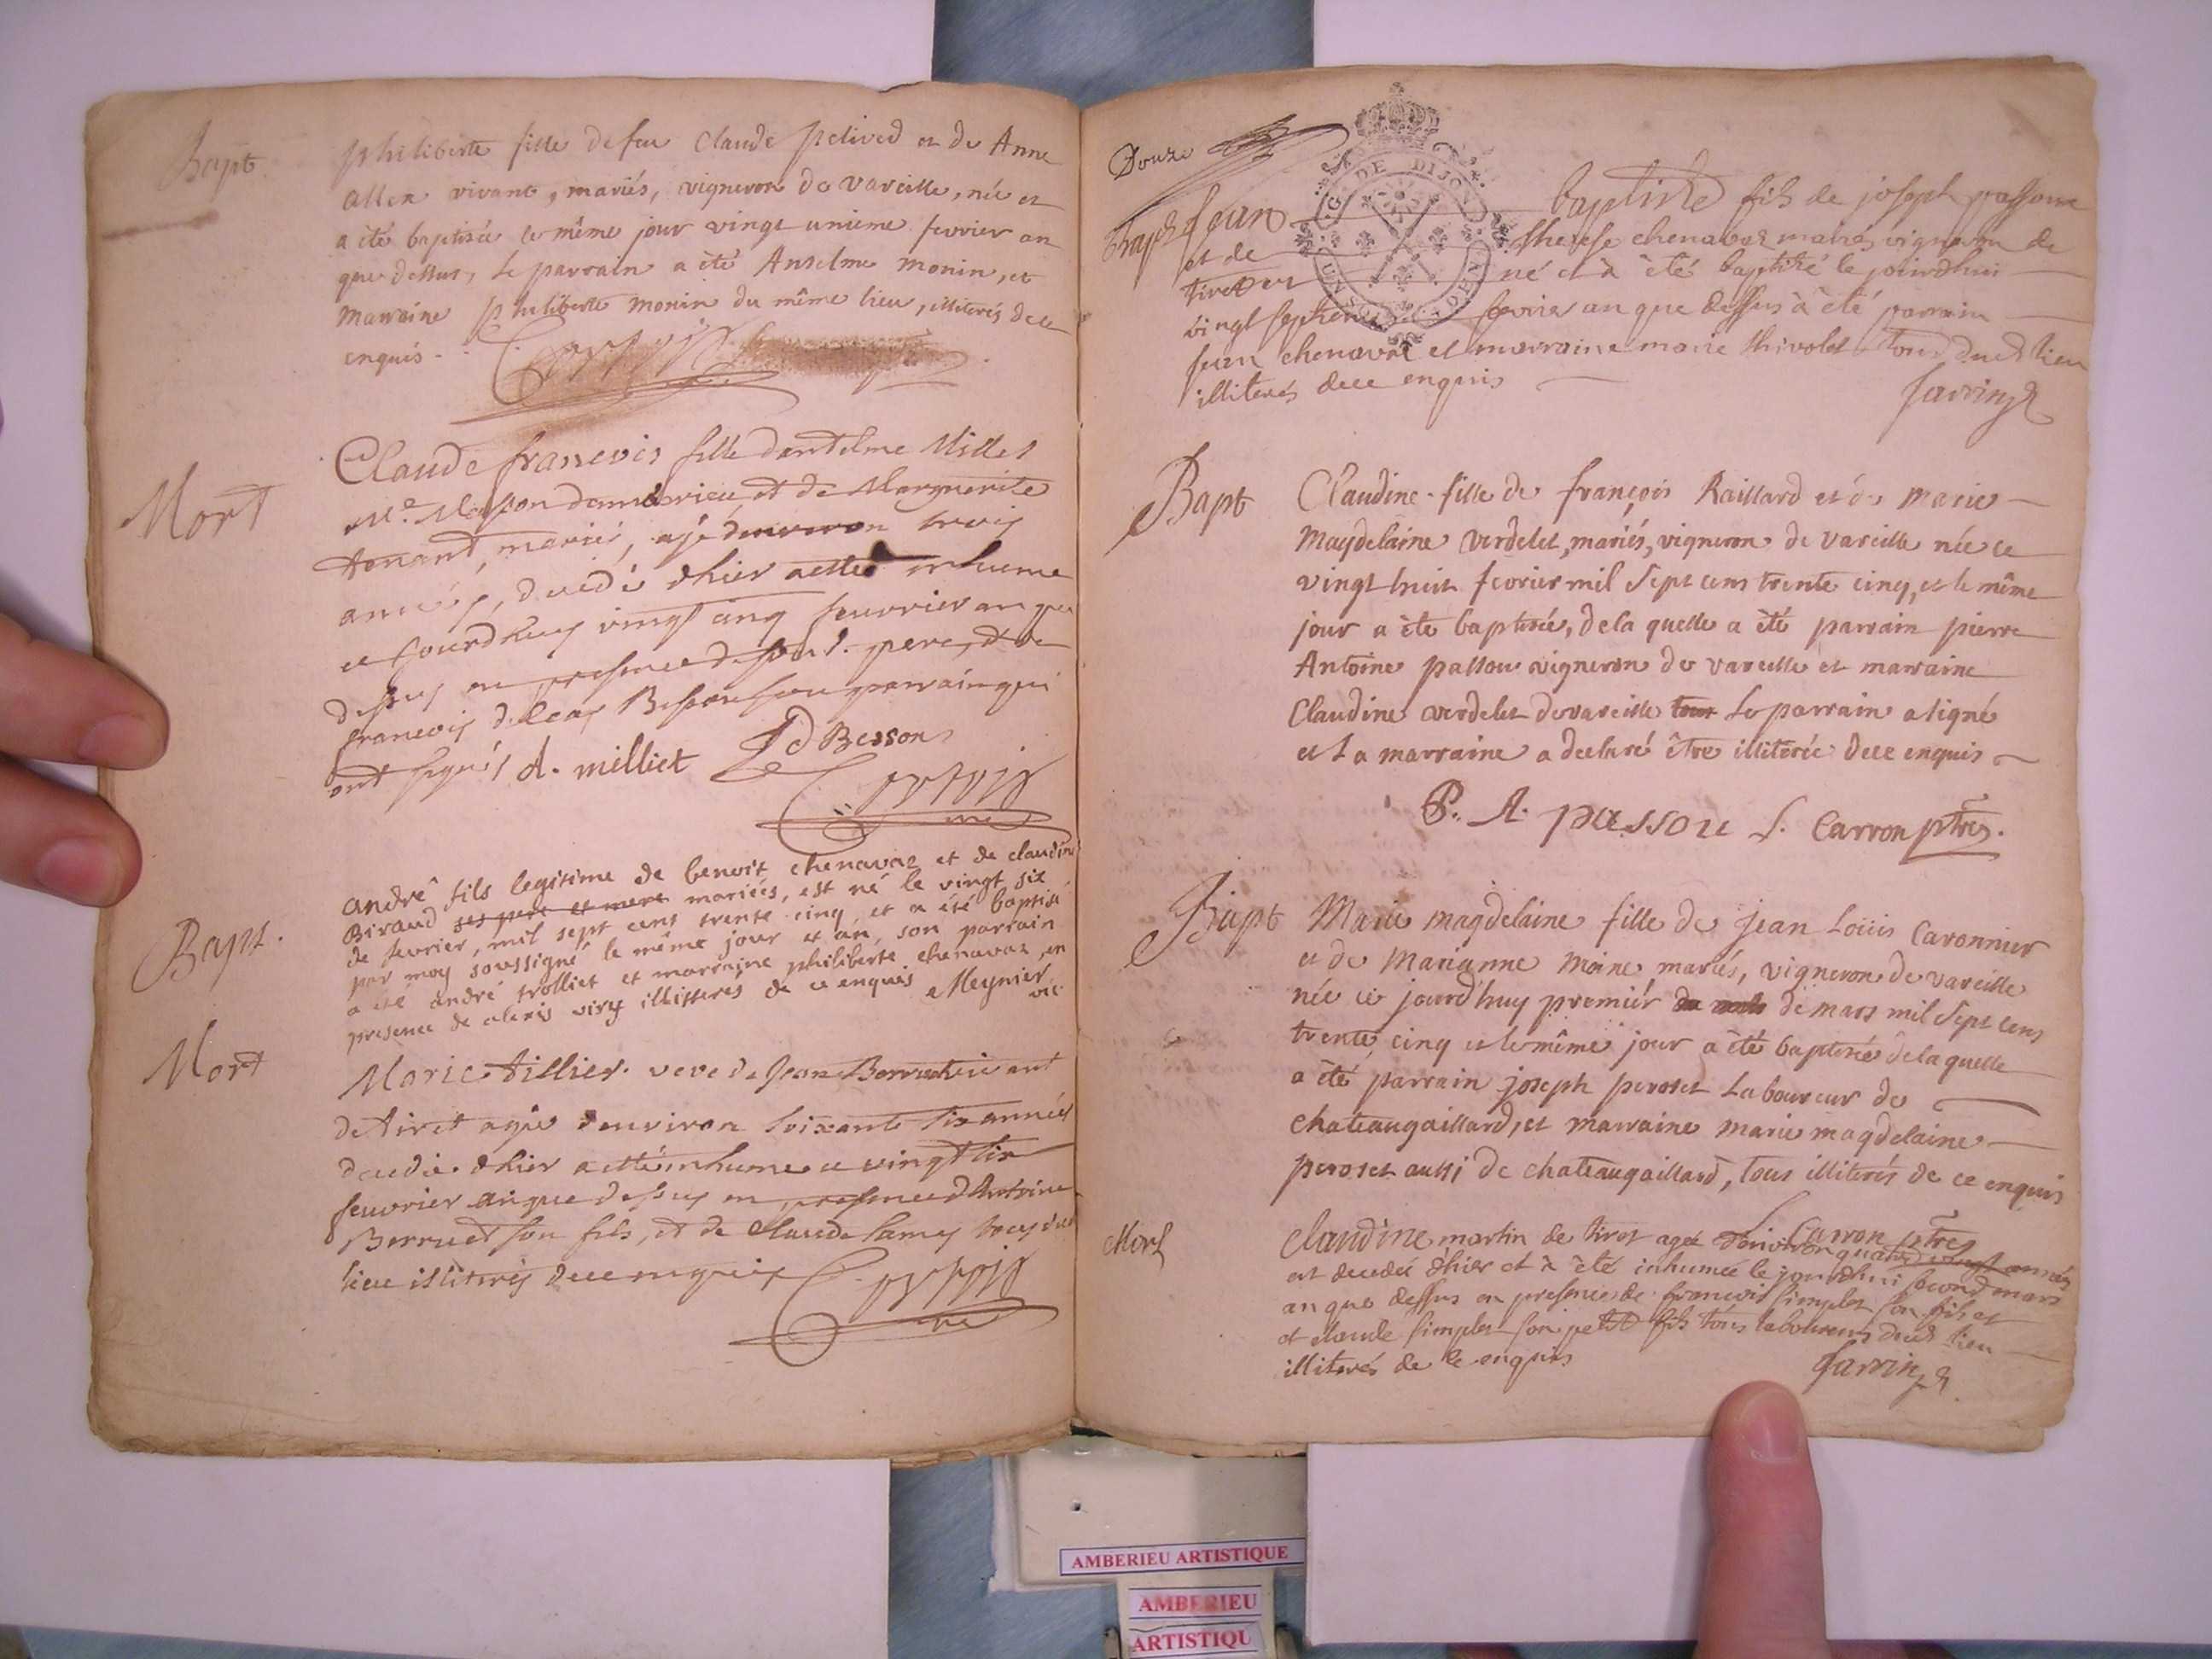 Bapt.
philiberte fille de feu Claude pelived et de Anne
allen vivant, mariés, vigneron de vareille, née et
a été baptisée le même jour vingt unieme fevrier an
que dessus, le parrain a été Anselme monin, et
marraine philiberte monin du même lieu, illiterés de ce
enquis.
Mort
Claude francois fille dantelme Milliet
Me Masson damberieu et de Marguerite
tenant, mariés, agé denviron trois
années, decedé dhier a esté inhume
ce jourdhuy vingt cinq feuvrier an que
dessus en presence de son d. pere, et de
francois deleas Besson son parrain qui
ont signés A. milliet D Besson
Bapt.
andré fils legitime de benoit chenavaz et de claudine
Biraud ses pere et mere mariées, est né le vingt six
de fevrier, mil sept cens trente cinq, et a été baptisé
par moy soussigné le même jour et an, son parrain
a été andré trolliet et marraine philiberte chenavaz, en
presence de alexis viry illitterés de ce enquis Meynier
vic
Mort
Marie tillier veve de Jean Berruet vivant
de tiret agée denviron soixante six années
decedée dhier a esté inhume ce vingt six
feuvrier an que dessus en presence dAntoine
Berruet son fils, et de Claude lamy tous dud
lieu illiterés de ce enquis
Douze
DE DIJON
Bapt Jean baptiste fils de joseph passou
et de therese chenavaz mariés vigneron de
tiret né et à été baptisé le jourdhui
vingt septieme fevrier an que dessus à été parrain
jean chenavaz et marraine marie thivolet tous dud lieu
illiterés de ce enquis
Bapt
Claudine fille de françois Raillard et de marie
Magdelaine verdelet, mariés, vigneron de vareille née ce
vingt huit fevrier mil sept cens trente cinq, et le même
jour a été baptisée, de la quelle a été parrain pierre
Antoine passou vigneron de vareille et marraine
Claudine verdelet de vareille tous le parrain a signé
et la marraine a declaré être illiterée de ce enquis
P. A. passou S. Carron ptre.
Bapt
Marie magdelaine fille de jean Louis Caronnier
et de Marianne Moine mariés, vigneron de vareille
née ce jourd'huy premiér de mars mil sept cens
trente cinq et le même jour a été baptisée de la quelle
a été parrain joseph peroset laboureur de
chateaugaillard, et marraine marie magdelaine
peroset aussi de chateaugaillard, tous illiterés de ce enquis
Carron ptre
Mort
Claudine martin de tiret agée denviron quatre vingt années
est decedée dhier et à été inhumée le jourdhui second mars
an que dessus en presence de francois simplet son fils, et
et claude simplet son petit fils tous laboureurs dud lieu
illiterés de ce enquis
AMBERIEU ARTISTIQUE
AMBERIEU
ARTISTIQU